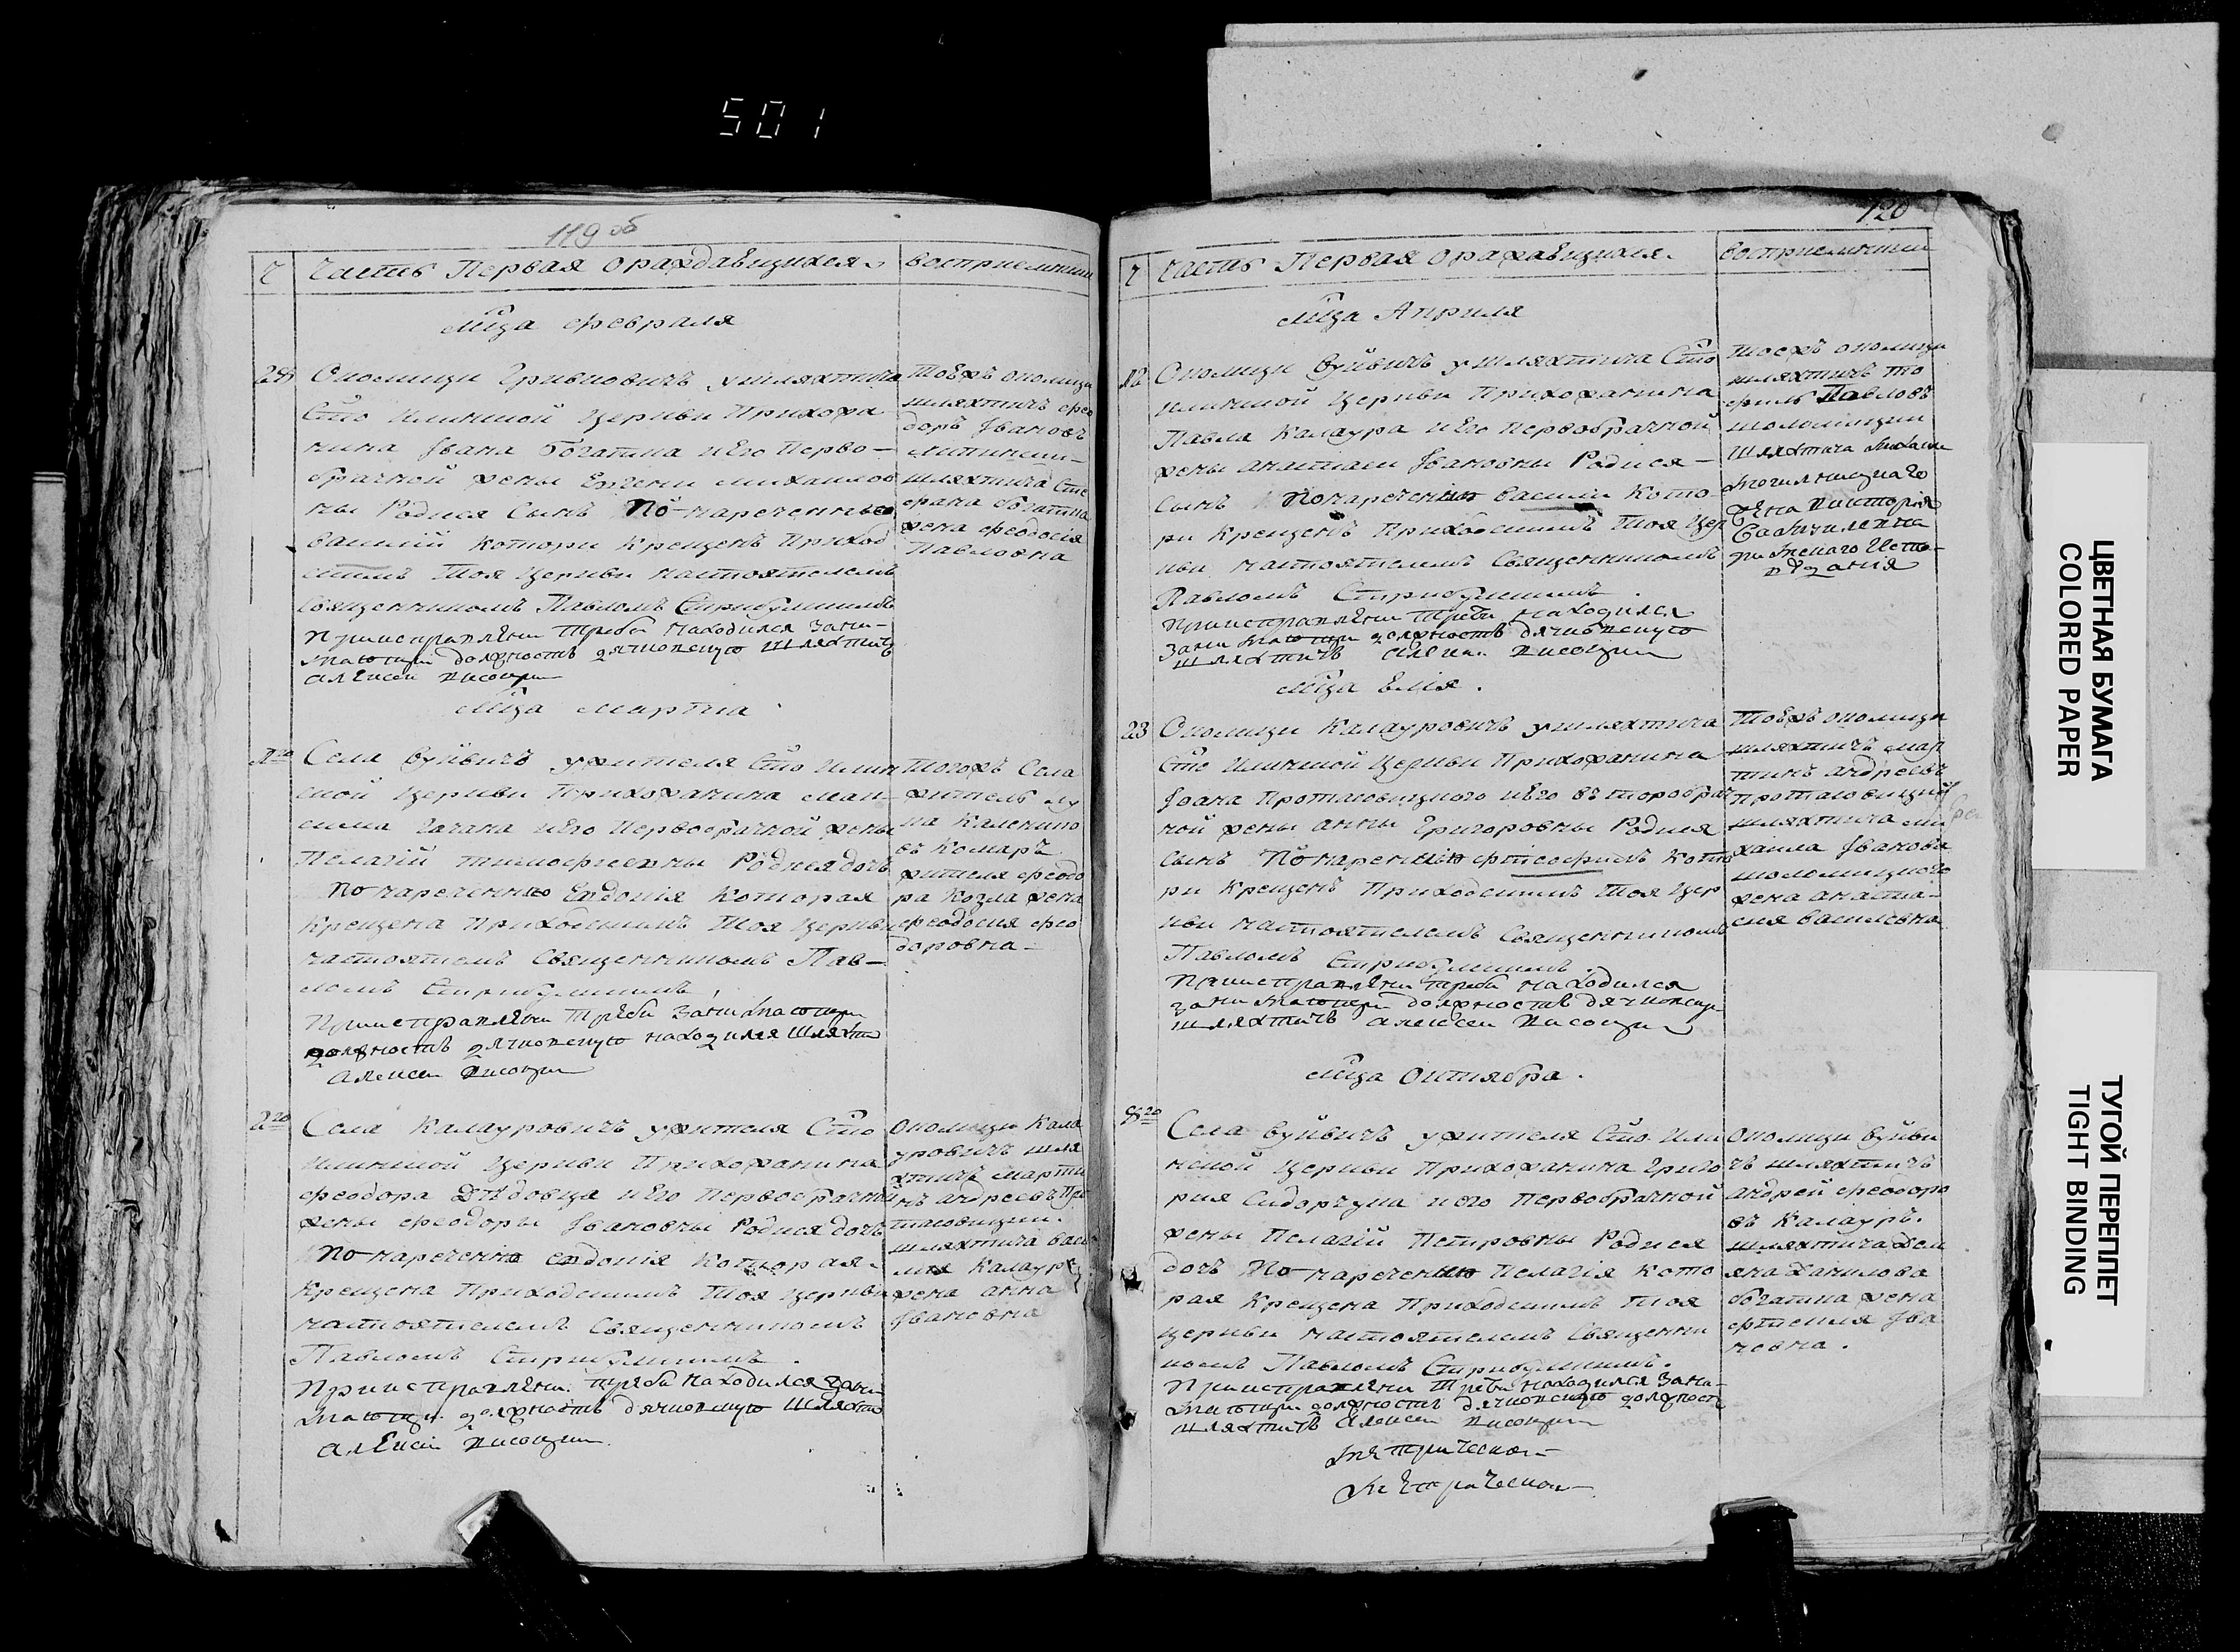 501
119 об
Ч Часть Первая ораждавщихся. восприемники
Мца февраля
28 Околици Гривковичъ у шляхтича
Сто Илинской Церкви Прихожа
нина Івана Богатина и Его Перво-
брачной жены Евгени Михаилов
ны Родися Сынъ По-нареченные
василій которы крещенъ Приход
скимъ Тоя Церкви настоятелемъ
Священникомъ Павломъ
При исправлени требы находился зани-
мающи должность дячковскую шляхтичъ
Алексей Высоцки
Тоежъ околици
шляхтичъ фео
доръ Івановъ
шляхтича Сте
фана богатина
жена феодосія
Павловна
Мца Марта
Села Вуйвичъ у жителя Сто Илин
ской Церкви Прихожанина Мак-
сима Гачана и Его Первобрачной жены
Пелагіи Тимофеевны Родися дочь
По нареченню Евдокія которая
крещена Приходскимъ Тоя Церкви
настоятемъ Священникомъ Пав-
ломъ
При исправлени требы занимающи
должность дячковскую находился шляхти
Алексеи Высоцки
Тогожъ Села
житель Лу
ка Каленико
въ Комаръ
жителя феодо
ра Козла жена
феодосия фео
доровна-
2го Села Калауровичъ у жителя Сто
Илинской Церкви Прихожанина
феодора Дѣдовца и Его Первобрачной
жены феодоры Івановны Родися дочь
По нареченню евдокія которая
крещена Приходскимъ Тоя Церкви
настоятелемъ Священникомъ
Павломъ
При исправлени требы находился зани
мающи должность дячковскую шляхти
Алексей Высоцки
Околици Кала
уровичъ шля
хтичъ Марти
нъ андреевъ Про
тасовицки.
шляхтича Васи
лия Калаура
жена анна
Івановна
120
Ч Часть Первая оражавщихся. восприемники
Мца Априля
12 Околици Вуйвичъ у шляхтича Сто
Илинской Церкви Прихожанина
Павла Калаура и Его Первобрачной
жены анастасіи Івановны Родися-
Сынъ По нареченню василіи Кото-
ри крещенъ Приходскимъ Тоя Цер
кви настоятелемъ Священникомъ
Павломъ
При исправлени требы находился
занимающи должность дячковскую
шляхтичъ Алексеи Высоцки
Тоежъ околици
шляхтичъ
Павловъ
шоломицки
шляхтича Михаила
Могилницкаго
жена Виктория
римскаго Испо-
вѣдания
Мца Маія.
23 Околици Калауровичъ у шляхтича
Сто Илинской Церкви Прихожанина
Іоана Протасовицкого и Его второбрач
ной жены анны Григоровны Родися
Сынъ По нареченню фтеофилъ Кото
ри крещенъ Приходскимъ Тоя Цер
кви настоятелемъ Священникомъ
Павломъ
При исправлени требы находился
занимающи должность дячковску
шляхтичъ Алексеи Высоцки
Тоежъ околици
шляхтичъ Мар
тинъ андреевъ
протасовицки
шляхтича Ми
хаила Іванова
шоломицкого
жена анаста-
сия василевна
Мца Октября.
8го Села Вуйвичъ у жителя Сто Или
нской Церкви Прихожанина Григо
рия Сидорчука и его Первобрачной
жены Пелагіи Петровны Родися
дочь По нареченню Пелагія кото
рая крещена Приходскимъ Тоя
Церкви настоятелемъ Священни
комъ Павломъ
При исправлени требы находился зани-
мающи должность дячковскую должност
шляхтичъ Алексеи Высоцки
Метрическои-
Метрическои-
Околици Вуйви
чъ шляхтичъ
андрей феодоро
въ Калауръ.
шляхтича Дем
яна Данилова
богатина жена
Іва
новна.
ЦВЕТНАЯ БУМАГА
COLORED PAPER
ТУГОЙ ПЕРЕПЛЕТ
TIGHT BINDING